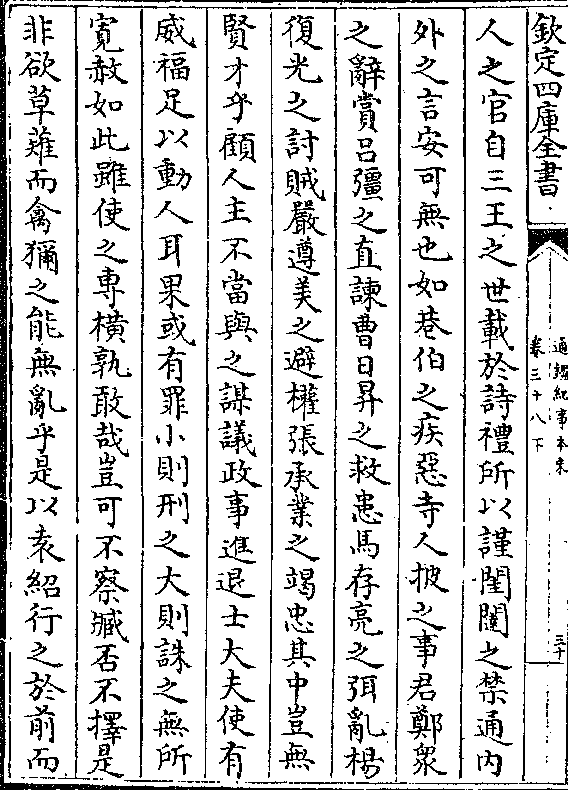 欽定四庫全書
通鑑紀事本末
卷三十八下
三十
人之官自三王之世載於詩禮所以謹閨闥之禁通内
外之言安可無也如巷伯之疾惡寺人披之事君鄭衆
之辭賞吕彊之直諫曹日昇之救患馬存亮之弭亂楊
復光之討賊嚴遵美之避權張承業之竭忠其中豈無
賢才乎顧人主不當與之謀議政事進退士大夫使有
威福足以動人耳果或有罪小則刑之大則誅之無所
寛赦如此雖使之專横孰敢哉豈可不察臧否不擇是
非欲草薙而禽獮之能無亂乎是以袁紹行之於前而